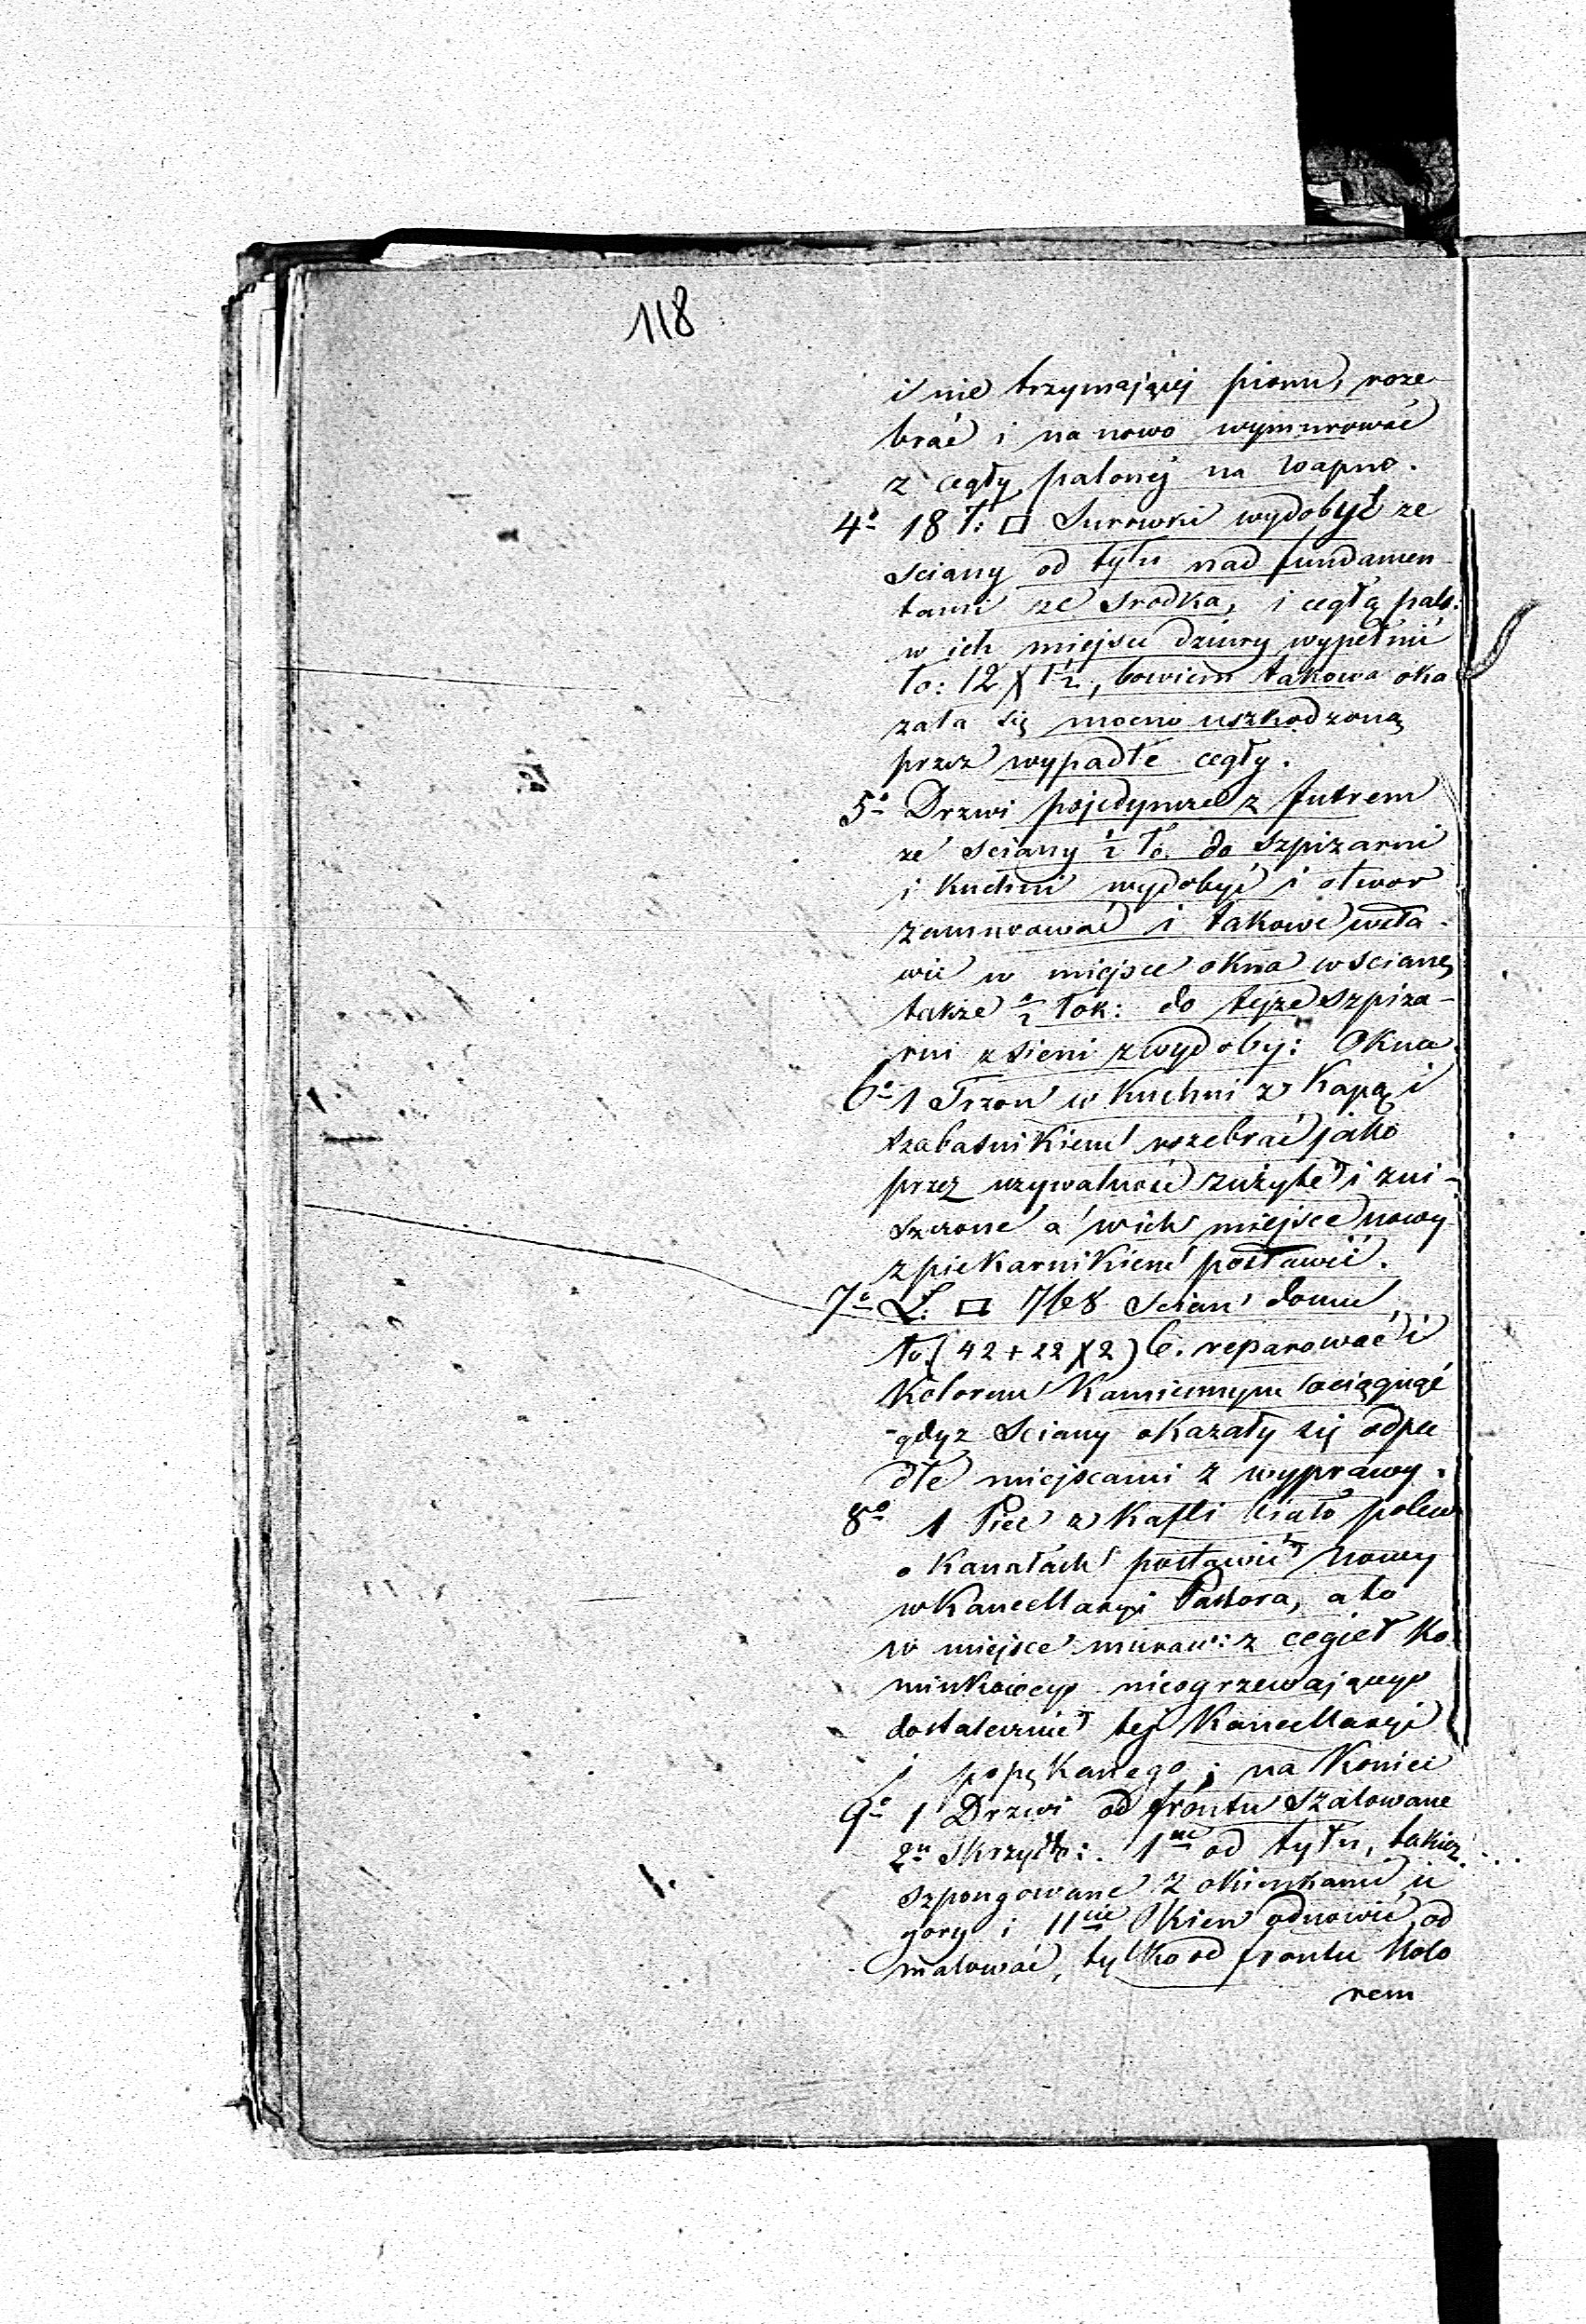 118
i nie trzymającéj pionu, roze
brać i na nowo wymurować
z cegły palonéj na wapno.
4º 18 ł: □ Surowki wydobyć ze
sciany od tyłu nad fundamen
tami ze srodka, i cegłą pal:
w ich miejsce dziury wypełnić
ło: 12 X 1½, bowiem takowa oka
zała się mocno uszkodzoną
przez wypadłe cegły.
5º Drzwi pojedyncze z futrem
ze sciany ½ ło. do szpizarni
i Kuchni wydobyć i otwor
zamurować i takowe wsta
wić w miejsce okna w scianę
także ½ łok: do tejże szpiza-
rni z sieni z wydoby: Okna
6º 1 Trzon w Kuchni z Kapą i
szabasnikiem rozebrać jako
przez używalność zużyte i zni-
szczone a w ich miejsce nowy
z piekarnikiem postawić.
7º Ł: □ 768 scian domu
ło (42 + 22 X 2) 6. reparować i
Kolorem Kamiennym pociągnąć
gdyz Sciany okazały się odpa
dłe miejscami z wyprawy.
8º 1 Piec z Kafli biało polew
o Kanałach postawić nowy
w Kancellaryi Pastora, a to
w miejsce murow: z cegieł Ko
minkowego nieogrzewającego
dostatecznie tej Kancellaryi
i popękanego; na Koniec
9º 1 Drzwi od frontu szalowane
2u Skrzydło: 1ne od tyłu, takiez
szpongowane z okienkami u
gory i 11cie Okien odnowić, od
malować, tylko od frontu Kolo
rem